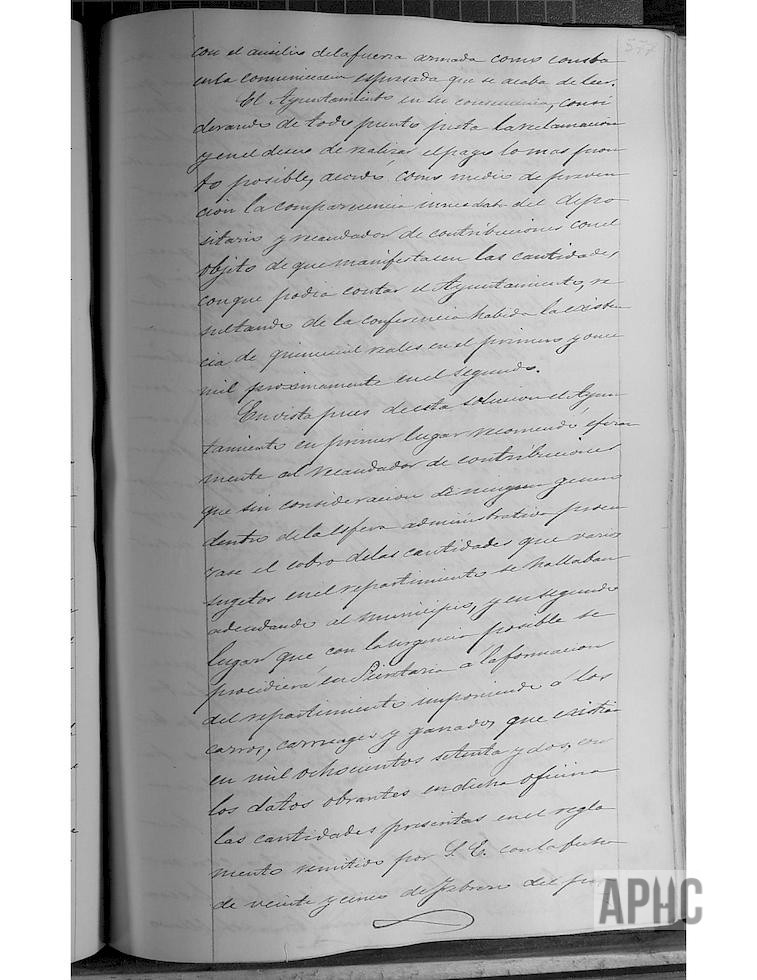 577
con el ausilio dela fuerza armada como consta
en la comunicacion espresada que se acaba de leer.
El Ayuntamiento en su consecuencia, consi
derando de todo punto justa la reclamacion
y en el deseo de realizar el pago lo mas pron
to posible, acordó como medio de preven
cion la comparecencia inmediata del depo
sitario y recaudador de contribuciones con el
objeto de que manifestasen las cantidades
con que podia contar el Ayuntamiento, re
sultando de la conferencia habida la existen
cia de quince mil reales en el primero y once
mil proximamente en el segundo.
En vista pues de esta solucion el Ayun
tamiento en primer lugar recomendó eficaz
mente al recaudador de contribuciones
que sin consideracion de ningun genero
dentro de la esfera administrativa procu
rase el cobro delas cantidades que varios
sugetos en el repartimiento se hallaban
adeudando al municipio, y en segundo
lugar que con la urgencia posible se
procediera en Secretaria á la formacion
del repartimiento imponiendo á los
carros, carruages y ganados que existia
en mil ochocientos setenta y dos, con
los datos obrantes en dicha oficina
las cantidades prescritas en el regla
mento remitido por S. E. con la fecha
de veinte y cinco de Febrero del
APHC